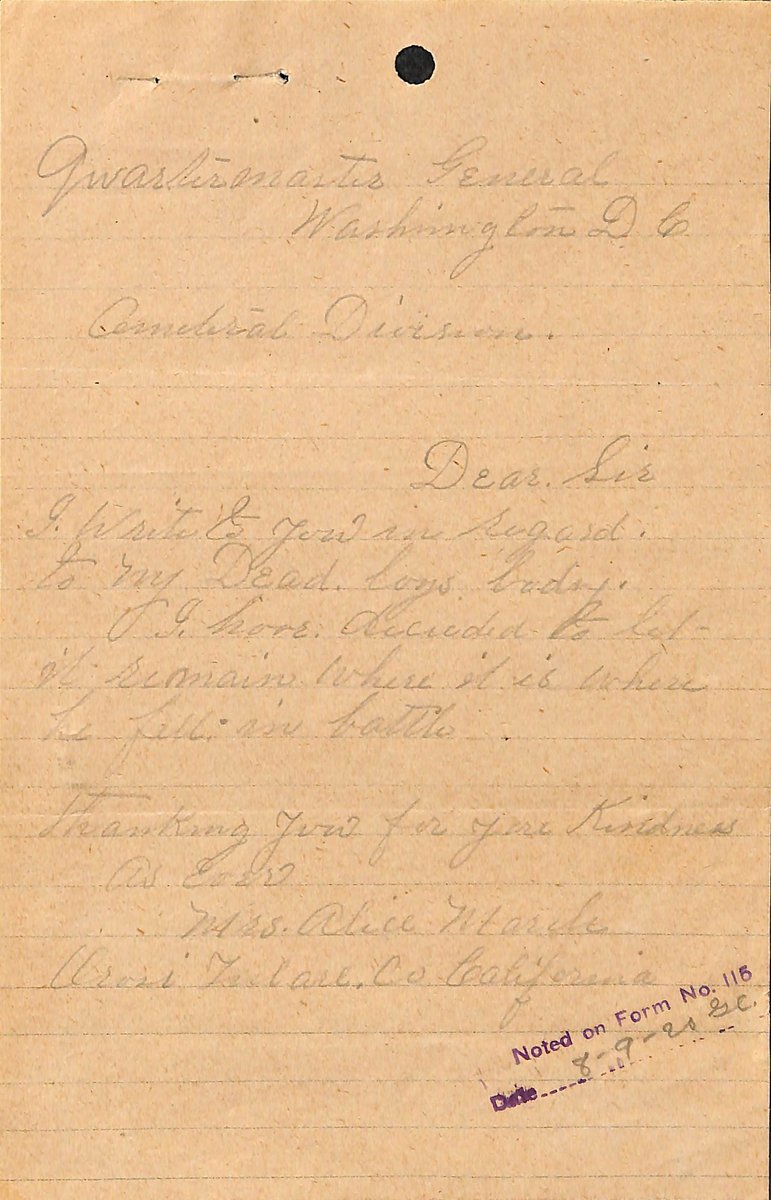 Qwartermaster General
Washington D. C
Cemeteral Division.
Dear. Sir
I. Write to yow in regard.
to my Dead. boys body.
I. have. decieded to let
it remain where it is where
he fell. in battle
Thanking yow for yore Kindness
As Ever
Mrs. Alice
Tulare. Co California
Noted on Form No. 115
Date 8-9-20